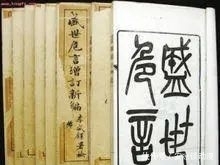 盛世
危言
盛世危言增訂新編